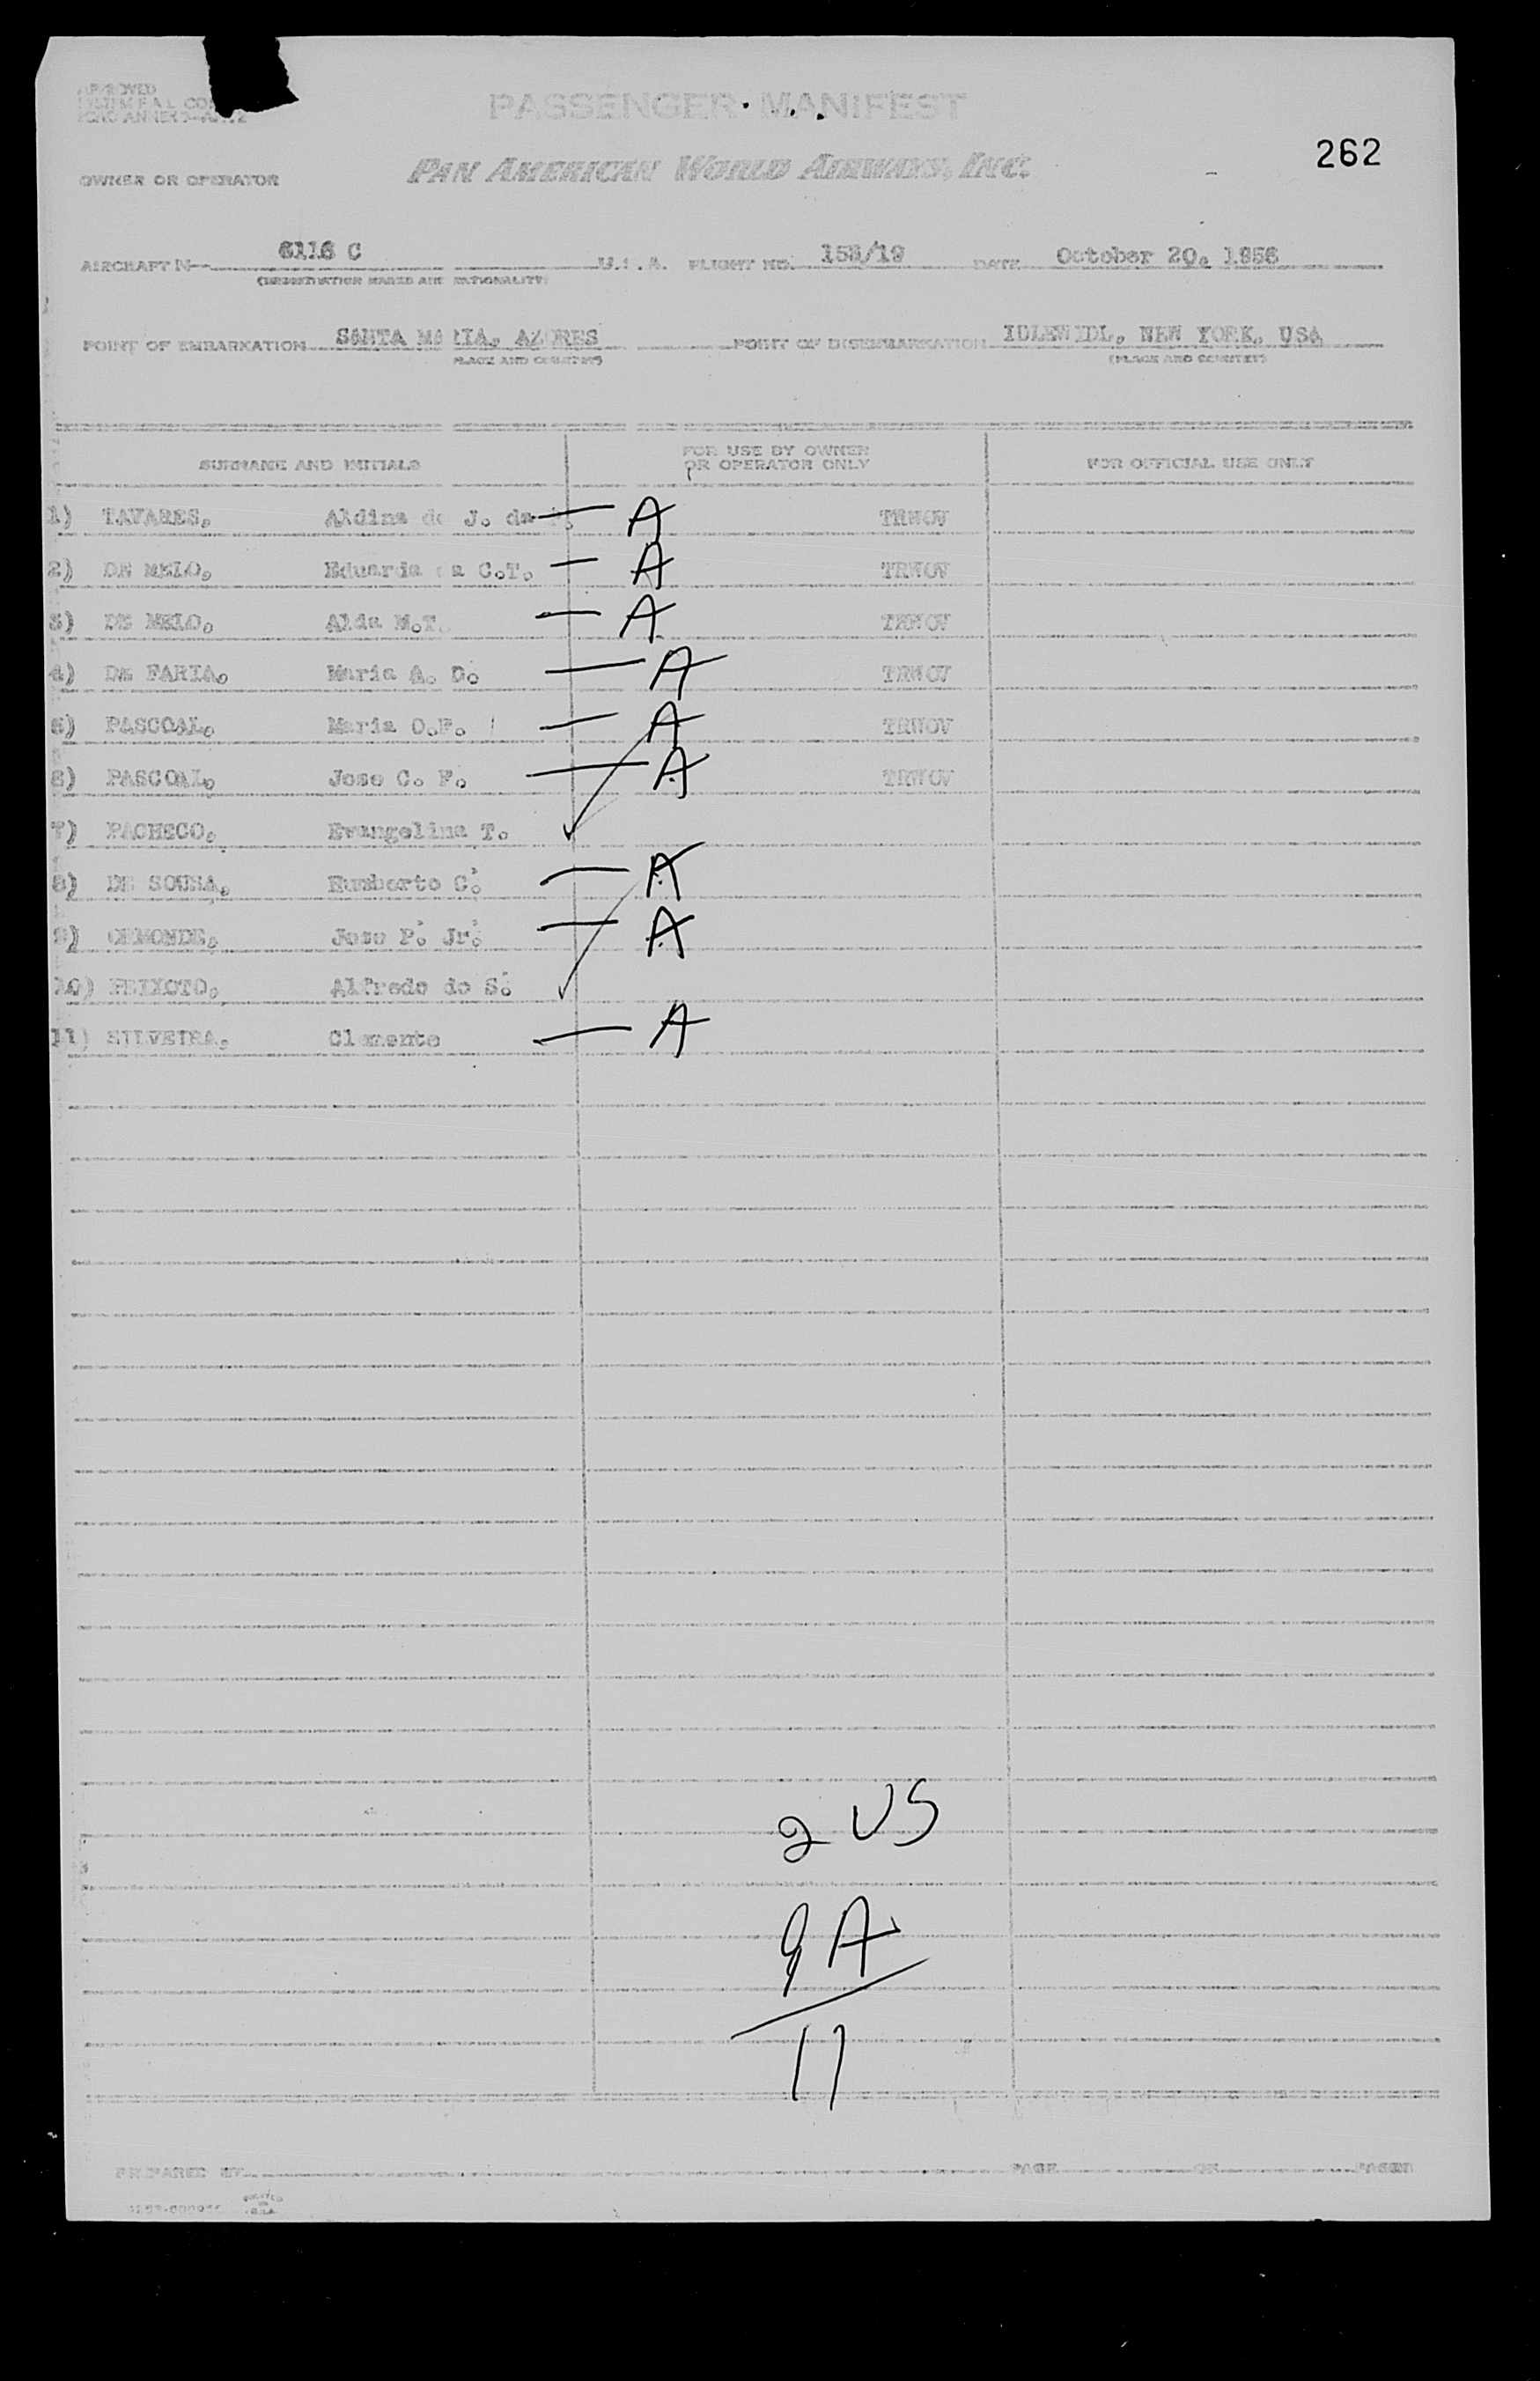 APPROVED
PASSENGER MANIFEST
262
OWNER OR OPERATOR PAN AMERICAN WORLD AIRWAYS, INC.
AIRCRAFT N— 6116 C FLIGHT NO. DATE October 20, 1956
POINT OF EMBARKATION SANTA MARIA, AZORES POINT OF DISEMBARKATION IDLEWIDL, NEW YORK, USA
(PLACE AND COUNTRY) (PLACE AND COUNTRY)
SURNAME AND INITIALS FOR USE BY OWNER OR OPERATOR ONLY FOR OFFICIAL USE ONLY
1) TAVARES, J. da — A TRNOV
2) DE MELO, Eduarda C.T. — A TRNOV
3) DE MELO, Alda M.T. — A TRNOV
4) DE FARIA, Maria A. D. — A TRNOV
5) PASCOAL, Maria O.F. — A TRNOV
6) PASCOAL, Jose C. F. — A TRNOV
7) PACHECO, Evangelina T. ✓
8) DE SOUSA, Humberto C. — A
9) ORMONDE, Jose P. Jr. — A
10) PEIXOTO, Alfredo de S. ✓
11) SILVEIRA, Clemente — A
2 US
9 A
11
PREPARED BY PAGE OF PAGES